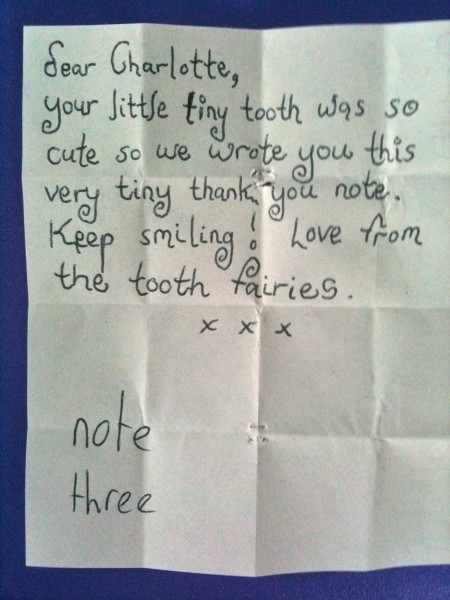 Dear Charlotte,
your little tiny tooth was so
cute so we wrote you this
very tiny thank you note.
Keep smiling! Love from
the tooth fairies.
x x x
note
three